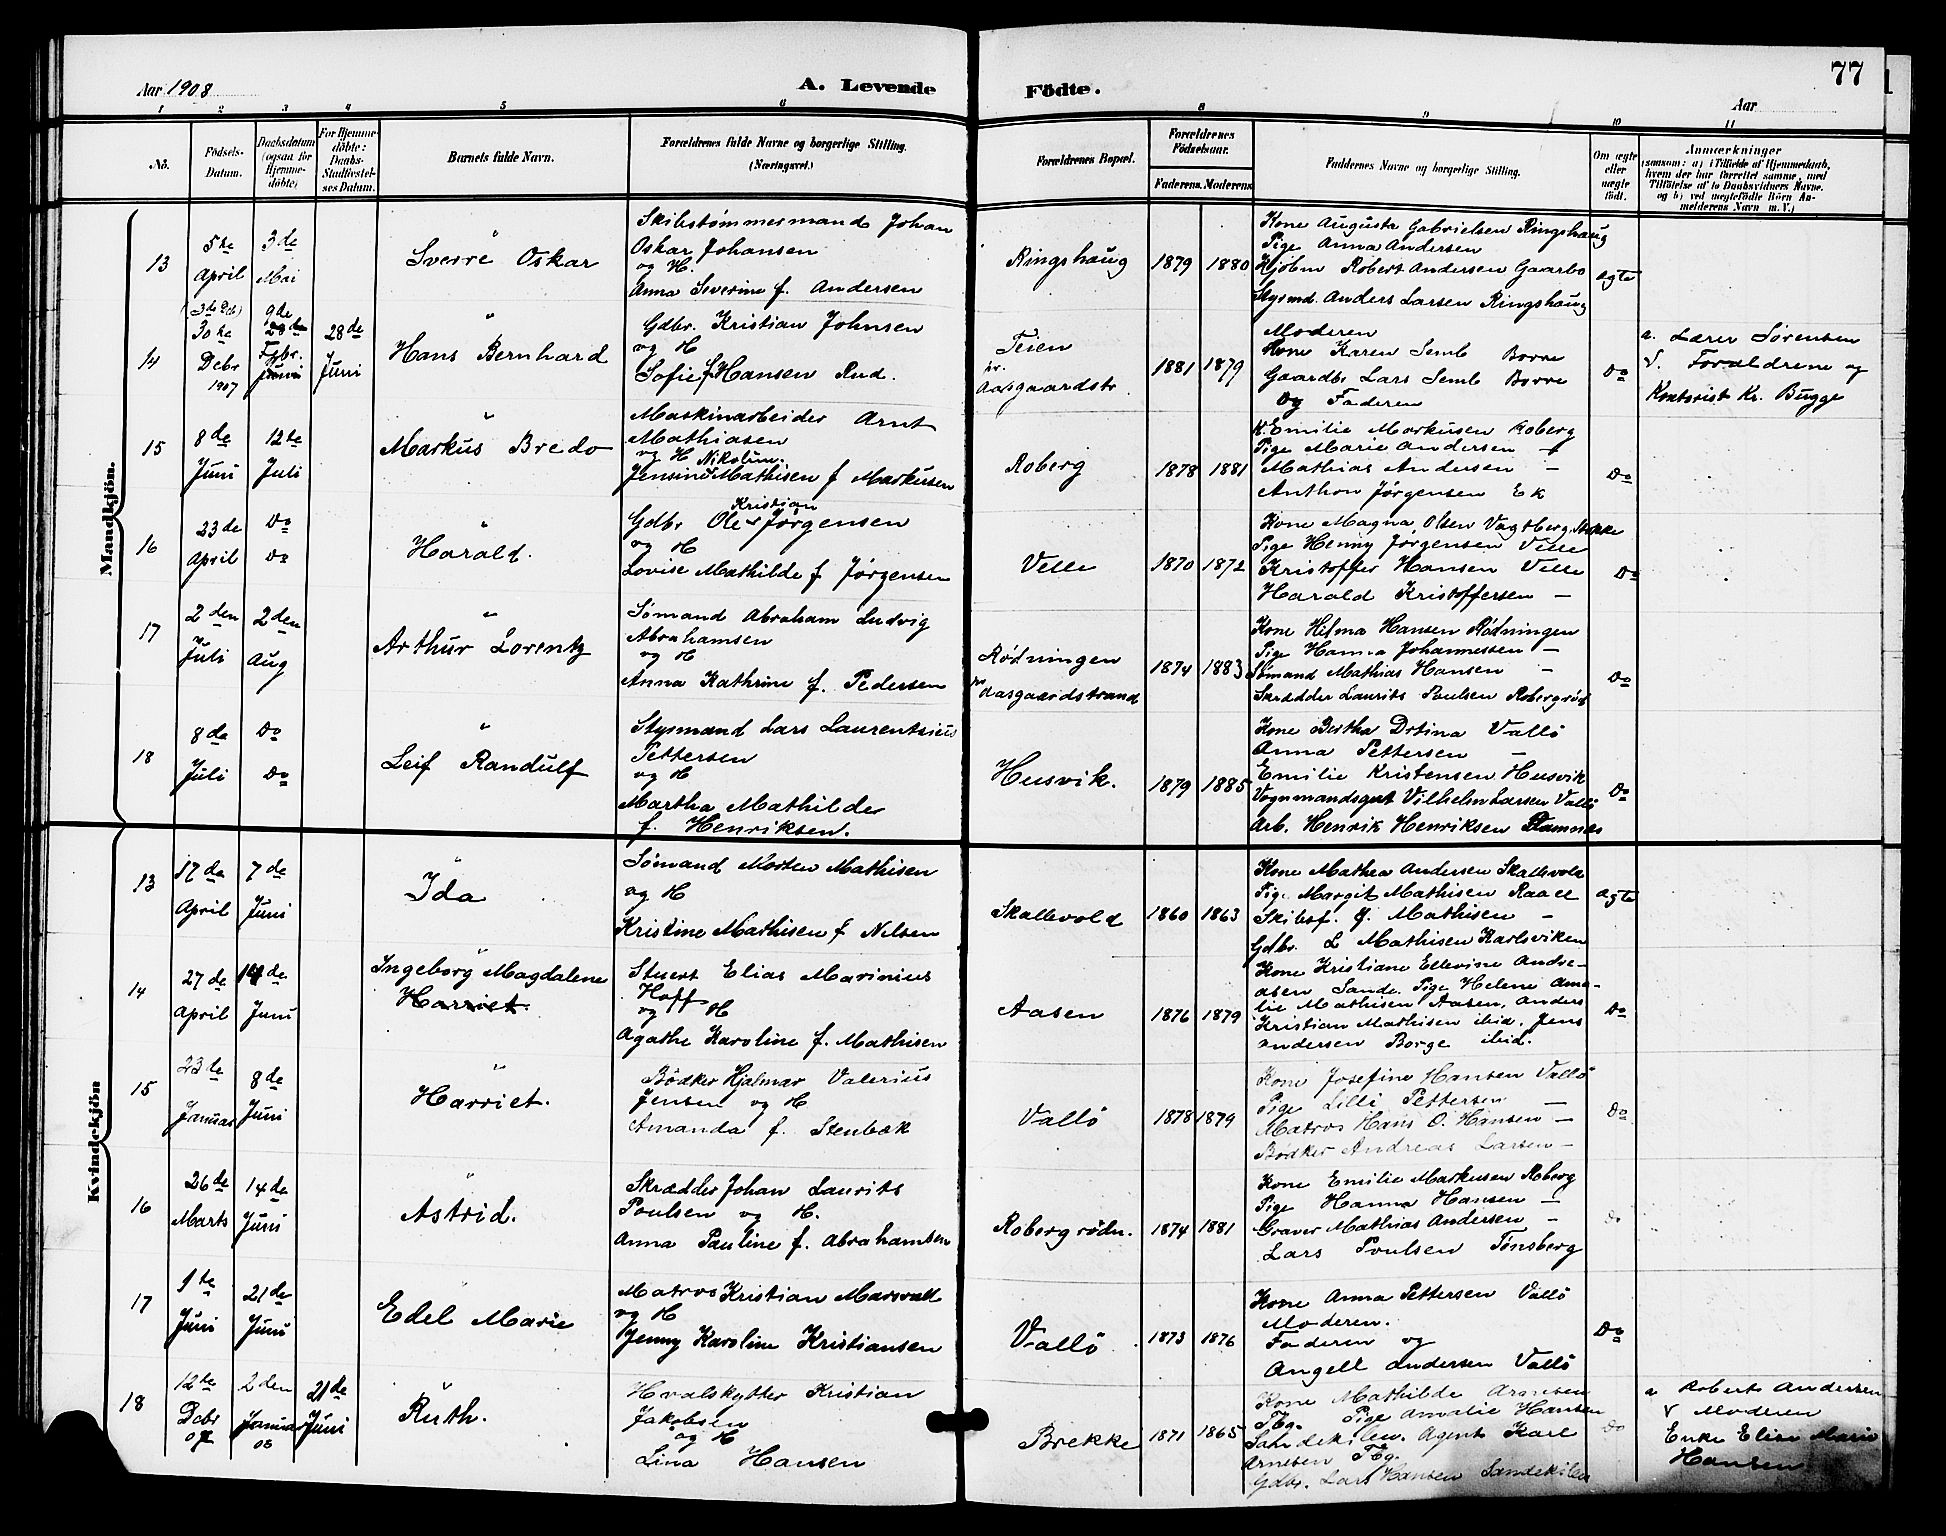 Aar 1908
A. Levende
Födte.
77
Aar
1 2 3 4 5 6 8 9 10 11
No.
Födsels-
Datum.
Daabsdatum
(ogsaa for
Hjemme-
döbte)
For Hjemme-
döbte:
Daabs-
Stadfæstel-
ses Datum.
Barnets fulde Navn.
Forældrenes fulde Navne og borgerlige Stilling.
(Næringsvei.)
Forældrenes Bopæl.
Forældrenes
Födselsaar.
Faderens. Moderens.
Faddernes Navne og borgerlige Stilling.
Om ægte
eller
uægte
födt.
Anmærkninger
(saasom: a) i Tilfælde af Hjemmedaab,
hvem der har forrettet samme, med
Tilföielse af to Daabsvidners Navne,
og b) ved uægtefödte Börn An-
melderens Navn m. V.)
Mandkjön.
13
5te
April
3de
Mai
Sverre Oskar
Skibstømmermand Johan
Oskar Johansen
og H.
Anna Severine f. Andersen
Ringshaug
1879 1880
Kone Augusta Gabrielsen Ringshaug
Pige Anna Andersen
Kjøbm Robert Andersen Gaarbo
Styrmd. Anders Larsen Ringshaug
ægte
14
30te
Debr
1907
9de
Febr.
Juni
28de
Juni
Hans Bernhard
Gdbr. Kristian Johnsen
og H
Sofie f Hansen Rud.
Teien
pr.
Aasgaardstr
1881 1879
Moderen
Kone Karen Semb Borre
Gaardbr Lars Semb Borre
og Faderen
Do
a. Lærer Sørensen
V. Forældrene og
Kontorist Kr. Bugge
15
8de
Juni
12te
Juli
Markus Bredo
Maskinarbeider Arnt
Mathiasen
og H Nikoline
Jensine Mathisen f Markusen
Roberg
1878 1881
K. Emilie Markusen Roberg
Pige Marie Andersen –
Mathias Andersen –
Anthon Jørgensen Ek
Do
16
23de
April
Do
Do
Harald.
Kristian
Gdbr Ole Jørgensen
og H
Lovise Mathilde f Jørgensen
Velle
1870 1872
Kone Magna Olsen Vagtberg, Stokke
Pige Henny Jørgensen Velle
Kristoffer Hansen Velle
Harald Kristoffersen –
Do
17
2den
Juli
2den
Aug
Arthur Lorentz
Sømand Abraham Ludvig
Abrahamsen
og H
Anna Kathrine f. Pedersen
Rødningen
pr Aasgaardstrand
1874 1883
Kone Hilma Hansen Rødningen
Pige Hanna Johannessen –
Sømand Mathias Hansen –
Skrædder Laurits Poulsen Robergrød
Do
18
8de
Juli
Do
Do
Leif Randulf
Styrmand Lars Laurentsius
Pettersen
og H
Martha Mathilde
f. Henriksen.
Husvik.
1879 1885
Kone Bertha Drtina Vallö
Anna Pettersen –
Emilie Kristensen Husvik
Vognmandsgut Vilhelm Larsen Vallö
Arb. Henrik Henriksen Ramnes
Do
Kvindekjön
13
17de
April
7de
Juni
Ida
Sømand Morten Mathisen
og H
Kristine Mathisen f Nilsen
Skallevold
1860 1863
Kone Mathea Andersen Skallevold
Pige Margit Mathisen Raael
Skibsf. J. Mathisen –
Gdbr. L Mathisen Karlsviken
ægte
14
27de
April
14de
Juni
Ingeborg Magdalene
Harriet.
Stuert Elias Marinius
Hoff
og H
Agathe Karoline f. Mathisen
Aasen
1876 1879
Kone Kristiane Ellevine Andre-
asen Sande. Pige Helene Ama-
lie Mathisen Aasen, Anders
Kristian Mathisen ibid. Jens
Andersen Borge ibid.
Do
15
23de
Januar
8de
Juni
Harriet.
Bödker Hjalmar Valerius
Jensen og H
Amanda f. Stenbæk
Vallö
1878 1879
Kone Josefine Hansen Vallö
Pige Lilli Pettersen –
Matros Hans O. Hansen –
Bödker Andreas Larsen –
Do
16
26de
Marts
14de
Juni
Astrid.
Skrædder Johan Laurits
Poulsen og H.
Anna Pauline f. Abrahamsen
Robergrödn.
1874 1881
Kone Emilie Markusen Roberg
Pige Hanna Hansen –
Graver Mathias Andersen –
Lars Poulsen Tønsberg
Do
17
1te
Juni
21de
Juni
Edel Marie
Matros Kristian Marsvall
og H
Jenny Karoline Kristiansen
Vallö
1873 1876
Kone Anna Pettersen Vallö
Moderen.
Faderen og
Angell Andersen Vallö
Do
18
12te
Debr
07
2den
Januar
08
21de
Juni
Ruth.
Hvalskytter Kristian
Jakobsen
og H
Lina Hansen
Brekke
1871 1865
Kone Mathilde Arnesen
Tbg. Pige Amalie Hansen
Sandekilen. Agent Karl
Arnesen Tbg.
Gdbr. Lars Hansen Sandekilen
Do
a Robert Andersen
V Moderen
Enke Elise Marie
Hansen